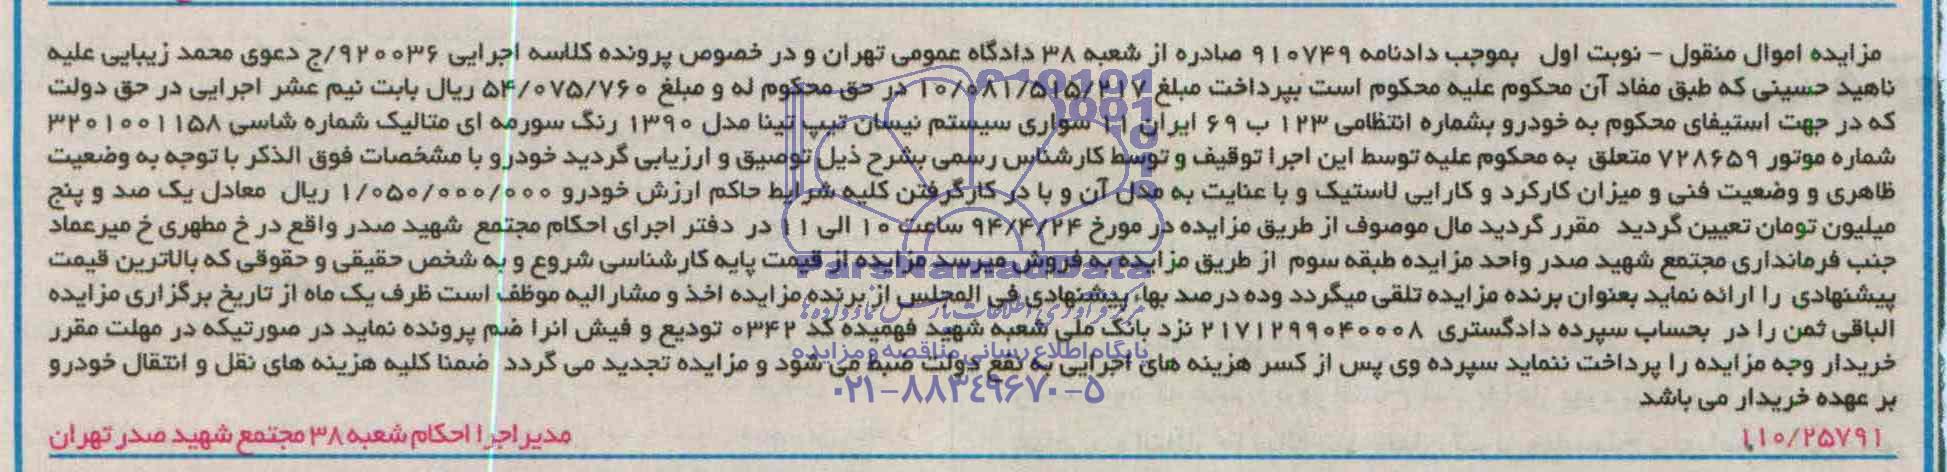 مزایده اموال منقول - نوبت اول بموجب دادنامه ۹۱۰۷۴۹ صادره از شعبه ۳۸ دادگاه عمومی تهران و در خصوص پرونده کلاسه اجرایی ۹۲۰۰۳۶/ج دعوی محمد زیبایی علیه
ناهید حسینی که طبق مفاد آن محکوم علیه محکوم است بپرداخت مبلغ ۱۰/۰۸۱/۵۱۵/۲۱۷ در حق محکوم له و مبلغ ۵۴/۰۷۵/۷۶۰ ریال بابت نیم عشر اجرایی در حق دولت
که در جهت استیفای محکوم به خودرو بشماره انتظامی ۱۲۳ ب ۶۹ ایران ۱۱ سواری سیستم نیسان تیپ تینا مدل ۱۳۹۰ رنگ سورمه ای متالیک شماره شاسی ۳۲۰۱۰۰۱۱۵۸
شماره موتور ۷۲۸۶۵۹ متعلق به محکوم علیه توسط این اجرا توقیف و توسط کارشناس رسمی بشرح ذیل توصیق و ارزیابی گردید خودرو با مشخصات فوق الذکر با توجه به وضعیت
ظاهری و وضعیت فنی و میزان کارکرد و کارایی لاستیک و با عنایت به مدل آن و با در کارگرفتن کلیه شرایط حاکم ارزش خودرو ۱/۰۵۰/۰۰۰/۰۰۰ ریال معادل یک صد و پنج
میلیون تومان تعیین گردید مقرر گردید مال موصوف از طریق مزایده در مورخ ۹۴/۴/۲۴ ساعت ۱۰ الی ۱۱ در دفتر اجرای احکام مجتمع شهید صدر واقع در خ مطهری خ میرعماد
جنب فرمانداری مجتمع شهید صدر واحد مزایده طبقه سوم از طریق مزایده به فروش میرسد مزایده از قیمت پایه کارشناسی شروع و به شخص حقیقی و حقوقی که بالاترین قیمت
پیشنهادی را ارائه نماید بعنوان برنده مزایده تلقی میگردد وده درصد بهاء پیشنهادی فی المجلس از برنده مزایده اخذ و مشارالیه موظف است ظرف یک ماه از تاریخ برگزاری مزایده
الباقی ثمن را در بحساب سپرده دادگستری ۲۱۷۱۲۹۹۰۴۰۰۰۸ نزد بانک ملی شعبه شهید فهمیده کد ۰۳۴۲ تودیع و فیش انرا ضم پرونده نماید در صورتیکه در مهلت مقرر
خریدار وجه مزایده را پرداخت ننماید سپرده وی پس از کسر هزینه های اجرایی به نفع دولت ضبط می شود و مزایده تجدید می گردد ضمنا کلیه هزینه های نقل و انتقال خودرو
بر عهده خریدار می باشد
۱۱۰/۲۵۷۹۱ مدیر اجرا احکام شعبه ۳۸ مجتمع شهید صدر تهران
ParsNamadData
مرکز فرآوری اطلاعات پارس نماد داده ها
پایگاه اطلاع رسانی مناقصه و مزایده
۰۲۱-۸۸۳۴۹۶۷۰-۵